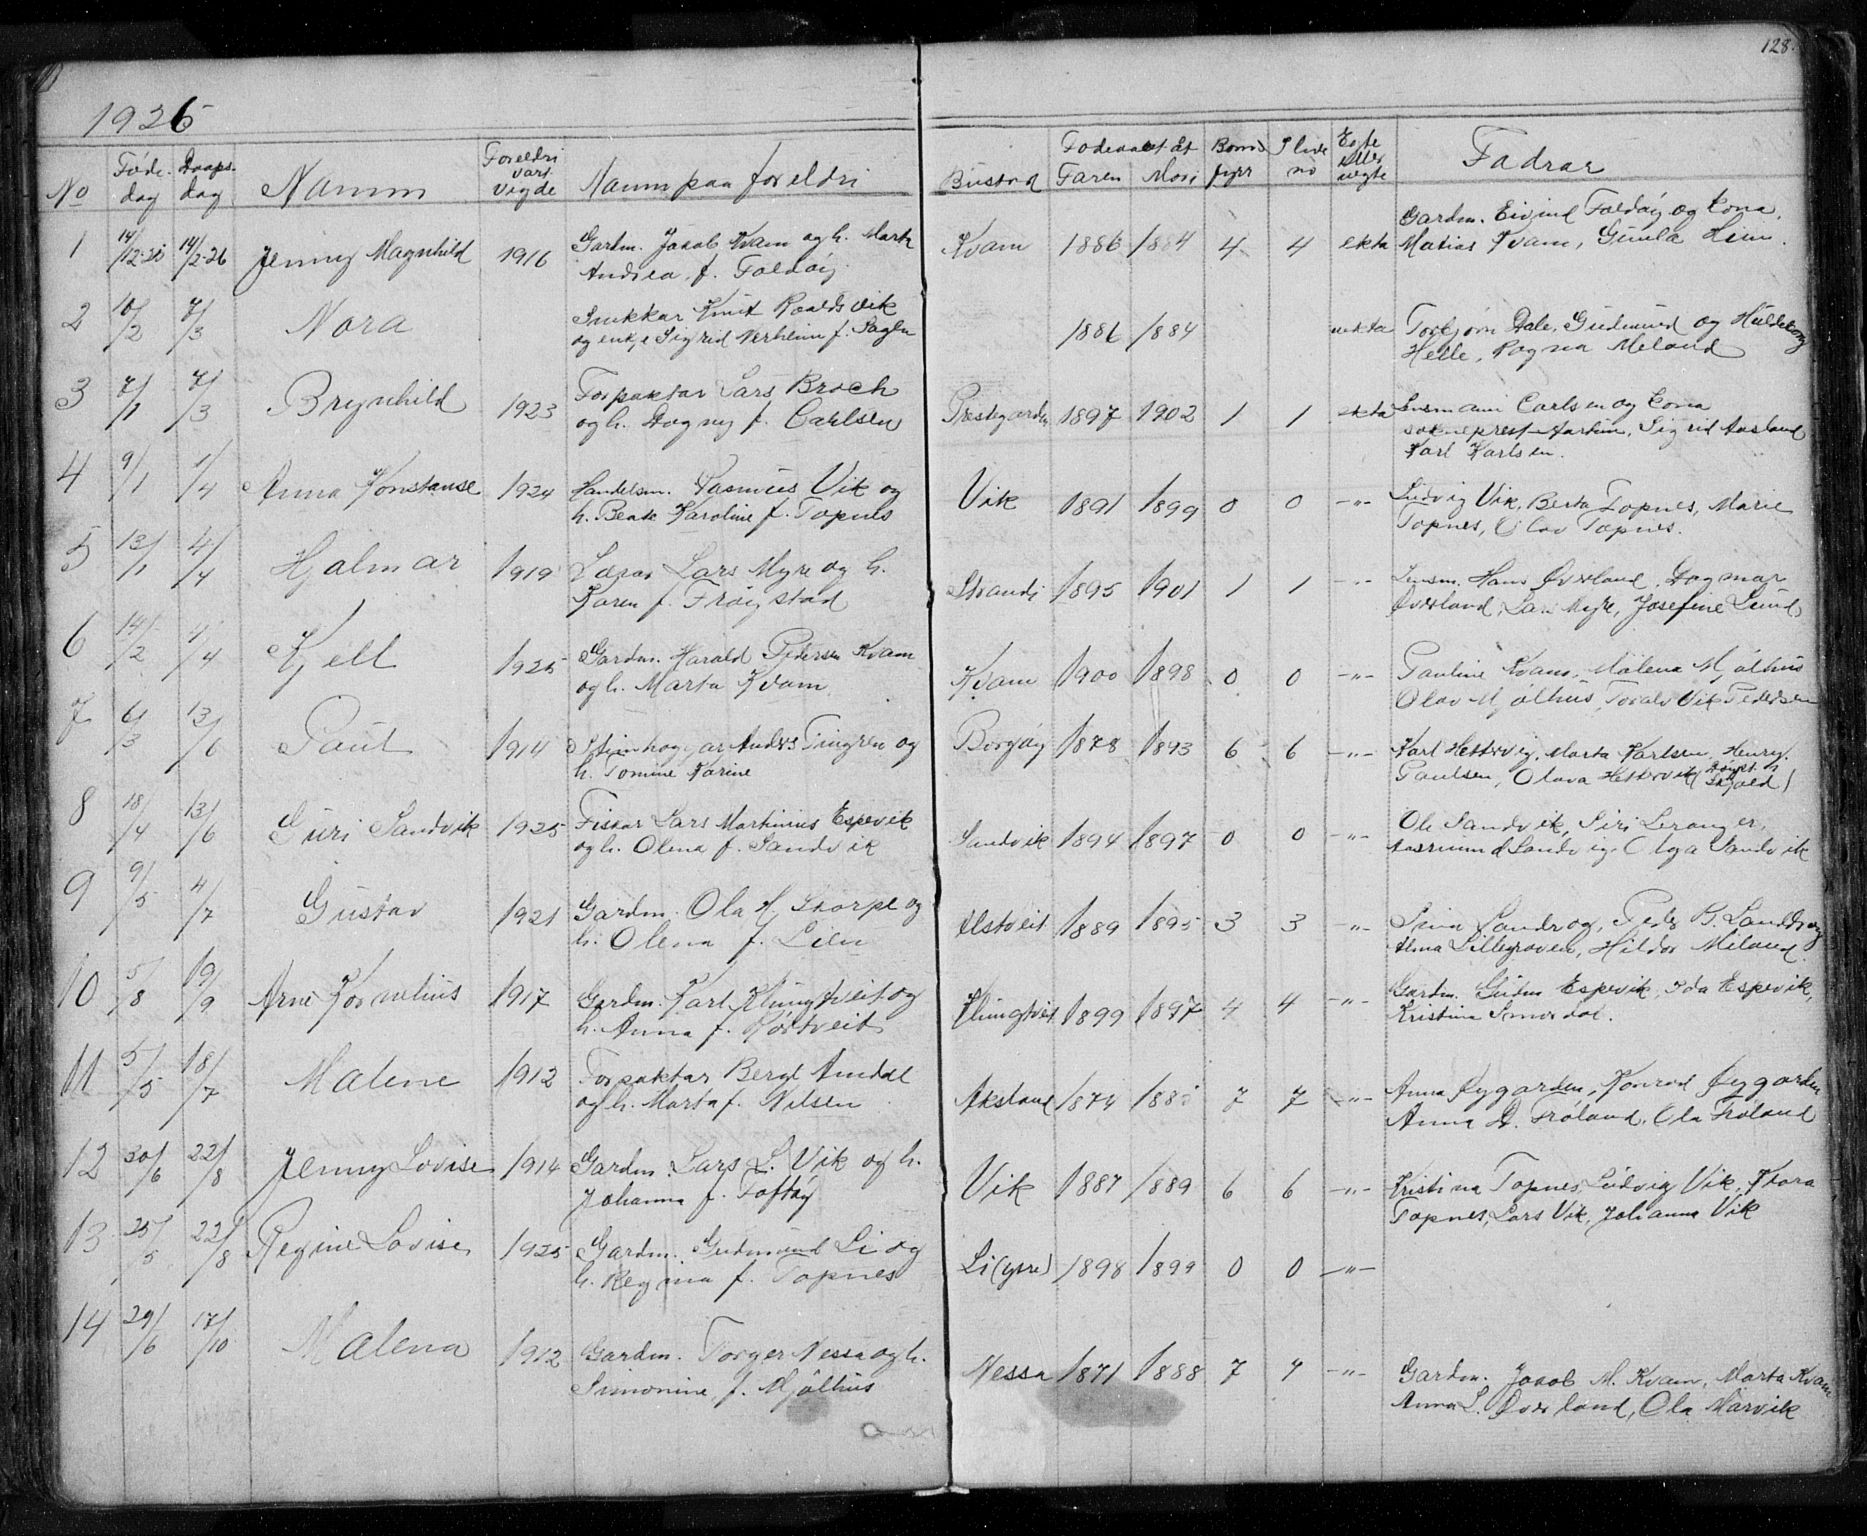 128.
1926
No Føde- dag Daaps- dag Namn Foreldri vart vigde Namn paa foreldri Bustad Fødeaaret åt Faren Mori Born fyrr I live no Egte eller uegte Fadrar
1 14/12-25 14/2-26 Jenny Magnhild 1916 Gardm. Jakob Kvam og h. Marta Kvam 1886 1884 4 4 ekta Gardm. Eivind Foldøy og kona,
Andrea, f. Foldøy. Matias Kvam, Gunla Lien.
2 10/2 7/3 Nora Snikkar Knut Roaldsvik 1886 1884 uekta Torbjørn Dale, Gudmund og Huldeborg
og enkje Sigrid Nerheim f. Hagen Helle, Ragna Meland
3 7/1 7/3 Brynhild 1923 Forpaktar Lars Broch Prestegarden 1897 1902 1 1 ekta Lensmann Carlsen og kona
og h. Dagny f. Carlsen sokneprest Aartun, Sigrid Aasland
Karl Karlsen.
4 9/1 1/4 Anna Konstanse 1924 Handelsm. Rasmus Vik og Vik 1891 1899 0 0 -"- Ludvig Vik, Berta Topnes, Marie
h. Beate Karoline f. Topnes Topnes, Olav Topnes.
5 13/1 4/4 Hjalmar 1919 Lærar Lars Myre og h. Strandi 1895 1901 1 1 -"- Lensm. Hans Øverland, Dagmar
Karen f. Frøystad Øverland, Lars Myre, Josefine Lund
6 14/2 4/4 Kjell 1925 Gardm. Harald Pedersen Kvam Kvam 1900 1898 0 0 -"- Pauline Kvam, Malena Mjølhus
og h. Marta Kvam Olav Mjølhus, Toralv Vik Pedersen
7 6/3 13/6 Paul 1914 Steinhoggar Anders Tingren og Borgøy 1878 1893 6 6 -"- Karl Hettervig, Marta Karlsen, Henry
h. Tomine Karine Paulsen, Olava Hettervik (døypt i Skjold)
8 18/4 13/6 Guri Sandvik 1925 Fiskar Lars Martinius Espevik Sandvik 1894 1897 0 0 -"- Ole Sandvik, Siri Leranger,
og h. Olena f. Sandvik Aasmund Sandvig, Olga Sandvik
9 9/5 4/7 Gustav 1921 Gardm. Ola H. Skorpe og Alstveit 1889 1895 3 3 -"- Sina Sandvog, Peder B. Sandvog
h. Olena f. Lien Alma Lillegraven, Hildor Meland.
10 5/8 19/9 Arne Kornelius 1917 Gardm. Karl Klungtveit og Klungtveit 1899 1897 4 4 -"- Gardm. Gudm Espevik, Ida Espevik,
h. Anna f. Rørtveit Kristina Smørdal.
11 5/5 18/7 Malene 1912 Forpaktar Bernt Amdal Aksland 1874 188 7 7 -"- Anna Øygarden, Konrad Øygarden
og h. Marta f. Nilsen Anna D. Frøland, Ola Frøland
12 30/6 22/8 Jenny Lovise 1914 Gardm. Lars L. Vik og h. Vik 1887 1889 6 6 -"- Kristina Topnes, Ludvig Vik, Thora
Johanna f. Toftøy Topnes, Lars Vik, Johanna Vik
13 25/5 22/8 Regine Lovise 1925 Gardm. Gudmund Li og Li (ytre) 1898 1899 0 0 -"-
h. Regina f. Topnes
14 29/6 17/10 Malena 1912 Gardm. Torger Nessa og h. Nessa 1871 1888 7 7 -"- Gardm. Jakob M. Kvam, Marta Kvam
Simonine, f. Mjølhus Anna L. Øverland, Ola Marvik